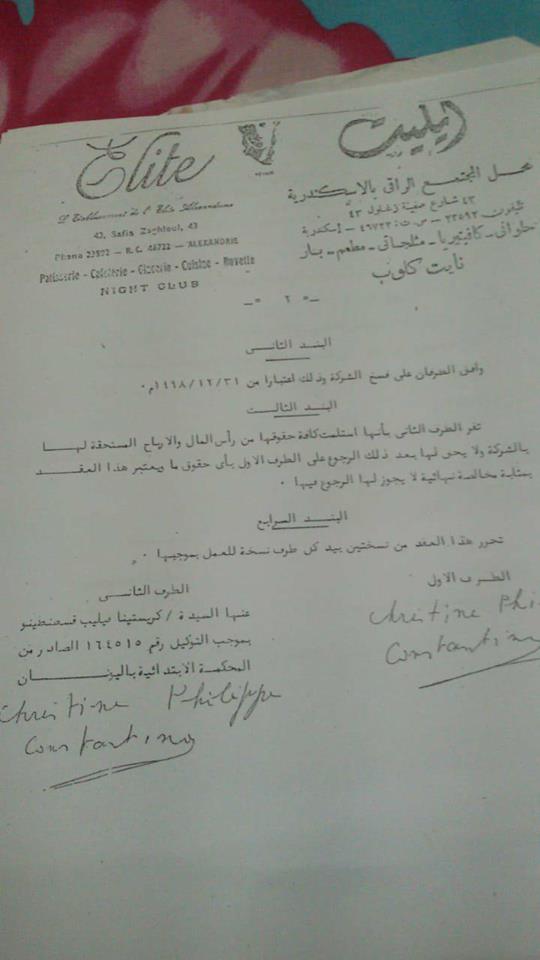 Elite
L'Etablissement de l'Elite Alexandrine
43, Safia Zaghloul, 43
Phone 23592 - R.C. 46722 - ALEXANDRIE
Patisserie - Cafeterie - Glacerie - Cuisine - Buvette
NIGHT CLUB
ايليت
محل المجتمع الراقى بالاسكندرية
٤٣ شارع صفية زغلول ٤٣
تليفون ٢٣٥٩٢ - س.ت: ٤٦٧٢٢ - إسكندرية
حلوانى - كافيتيريا - مثلجاتى - مطعم - بار
نايت كلوب
-= ٢ =-
البند الثانى
وافق الطرفان على فسخ الشركة وذلك اعتبارا من ١٩٩٨/١٢/٣١م٠
البند الثالث
تقر الطرف الثانى بأنها استلمت كافة حقوقها من رأس المال والارباح المستحقة لها
بالشركة ولا يحق لها بعد ذلك الرجوع على الطرف الاول بأى حقوق ما ويعتبر هذا العقد
بمثابة مخالصة نهائية لا يجوز لها الرجوع فيها ٠
البند الرابع
تحرر هذا العقد من نسختين بيد كل طرف نسخة للعمل بموجبها ٠
الطرف الاول
Christine Phi
Constantino
الطرف الثانى
عنها السيدة / كريستينا فيليب قسطنطينو
بموجب التوكيل رقم ١٦٤٥١٥ الصادر من
المحكمة الابتدائية باليونان
Christine Philippe
Constantino